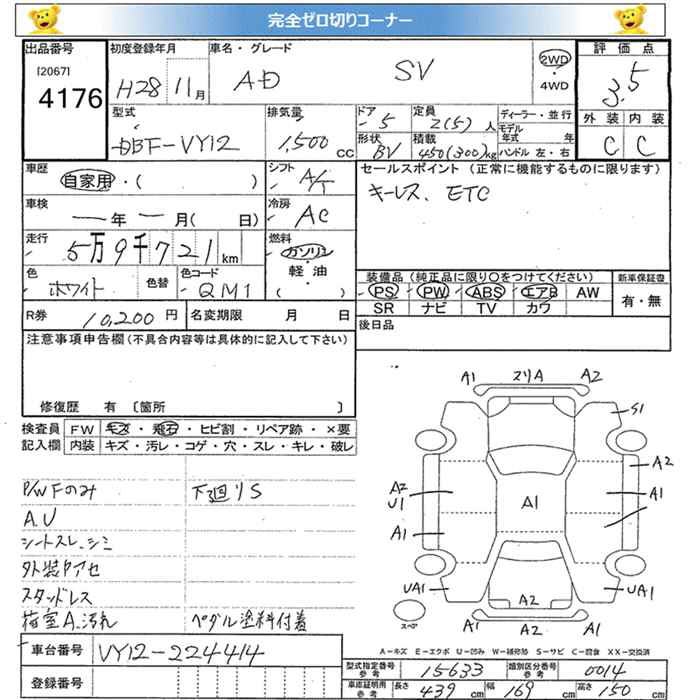 完全ゼロ切りコーナー
出品番号
[2067]
4176
初度登録年月
H28 11月
車名・グレード
AD SV
2WD
・
4WD
評価点
3.5
外装 内装
C C
型式
DBF-VY12
排気量
1,500 cc
ドア
5
形状
BV
定員
2(5)人
積載
450(300)kg
ディーラー・並行
モデル年式 年
ハンドル 左・右
車歴
自家用・( )
シフト
A/T
車検
ー年ー月( 日)
冷房
AC
走行
5万9千721km
燃料
ガソリン
・
軽油
( )
色
ホワイト
色替
色コード
QM1
セールスポイント(正常に機能するものに限ります)
キーレス、ETC
装備品(純正品に限り○をつけてください)
PS PW ABS エアB AW
SR ナビ TV カワ
新車保証書
有・無
R券 10,200円
名変期限 月 日
後日品
注意事項申告欄(不具合内容等は具体的に記入して下さい)
修復歴 有 〔箇所 〕
検査員 FW キズ・飛石・ヒビ割・リペア跡・×要
記入欄 内装 キズ・汚レ・コゲ・穴・スレ・キレ・破レ
P/WFのみ 下廻りS
A.U
シートスレ、シミ
外装タアセ
スタッドレス
荷室A、汚れ ペダル塗料付着
A1 スリA A2
S1
A2
A2
U1
A1
A1
A1
UA1
UA1
A2
A1 A2 A1
スペア
A-キズ E-エクボ U-凹み W-補修跡 S-サビ C-腐食 XX-交換済
車台番号 VY12-224414
登録番号
型式指定番号
参考
15633
類別区分番号
参考
0014
車庫証明用
参考
長さ 439 cm 幅 169 cm 高さ 150 cm